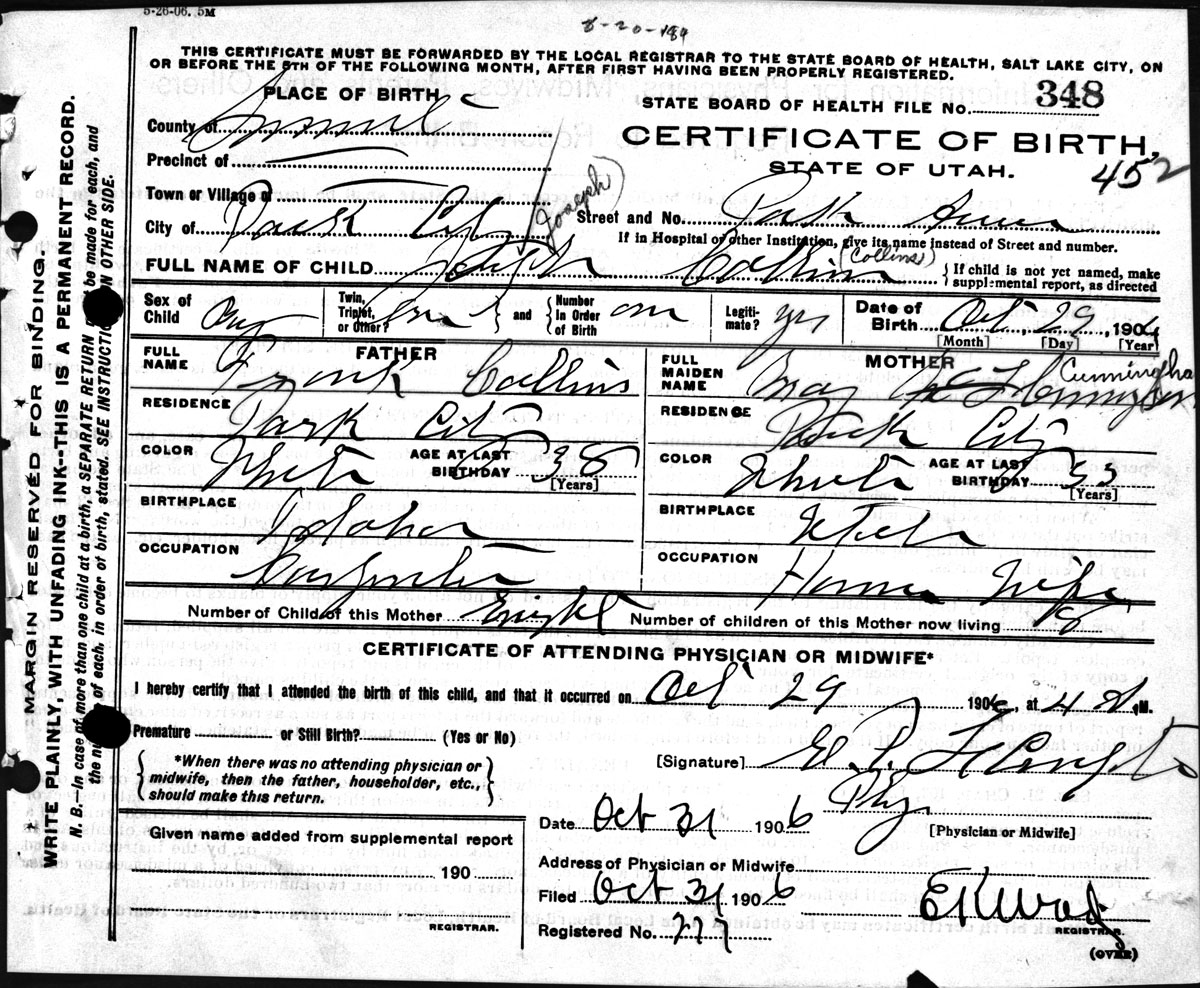 5-26-06. 5M
8-20-189
THIS CERTIFICATE MUST BE FORWARDED BY THE LOCAL REGISTRAR TO THE STATE BOARD OF HEALTH, SALT LAKE CITY, ON
OR BEFORE THE 5TH OF THE FOLLOWING MONTH, AFTER FIRST HAVING BEEN PROPERLY REGISTERED.
PLACE OF BIRTH
STATE BOARD OF HEALTH FILE No. 348
County of Summit
CERTIFICATE OF BIRTH,
Precinct of
STATE OF UTAH.
452
Town or Village of
(Joseph)
City of Park City
Street and No. Park
If in Hospital or other Institution, give its name instead of Street and number.
(Collins)
FULL NAME OF CHILD Joseph Collins
{ If child is not yet named, make
supplemental report, as directed
Sex of Child Boy
Twin, Triplet, or Other?
and
Number in Order of Birth
Legitimate? yes
Date of Birth Oct 29, 1906
[Month] [Day] [Year]
FATHER
FULL NAME Frank Collins
RESIDENCE Park City
COLOR White
AGE AT LAST BIRTHDAY 38
[Years]
BIRTHPLACE
OCCUPATION
MOTHER
FULL MAIDEN NAME May
Cunningha
RESIDENCE Park City
COLOR White
AGE AT LAST BIRTHDAY 33
[Years]
BIRTHPLACE Utah
OCCUPATION House Wife
Number of Child of this Mother Eight
Number of children of this Mother now living 8
CERTIFICATE OF ATTENDING PHYSICIAN OR MIDWIFE*
I hereby certify that I attended the birth of this child, and that it occurred on Oct 29 1906, at 4 M.
Premature or Still Birth? (Yes or No)
*When there was no attending physician or
midwife, then the father, householder, etc.,
should make this return.
[Signature]
Phy
[Physician or Midwife]
Date Oct 31 1906
Given name added from supplemental report
190
REGISTRAR.
Address of Physician or Midwife
Filed Oct 31 1906
Registered No. 277
REGISTRAR.
(OVER)
MARGIN RESERVED FOR BINDING.
WRITE PLAINLY, WITH UNFADING INK--THIS IS A PERMANENT RECORD.
N. B.--In case of more than one child at a birth, a SEPARATE RETURN be made for each, and
the of each, in order of birth, stated. SEE INSTRUCTION ON OTHER SIDE.